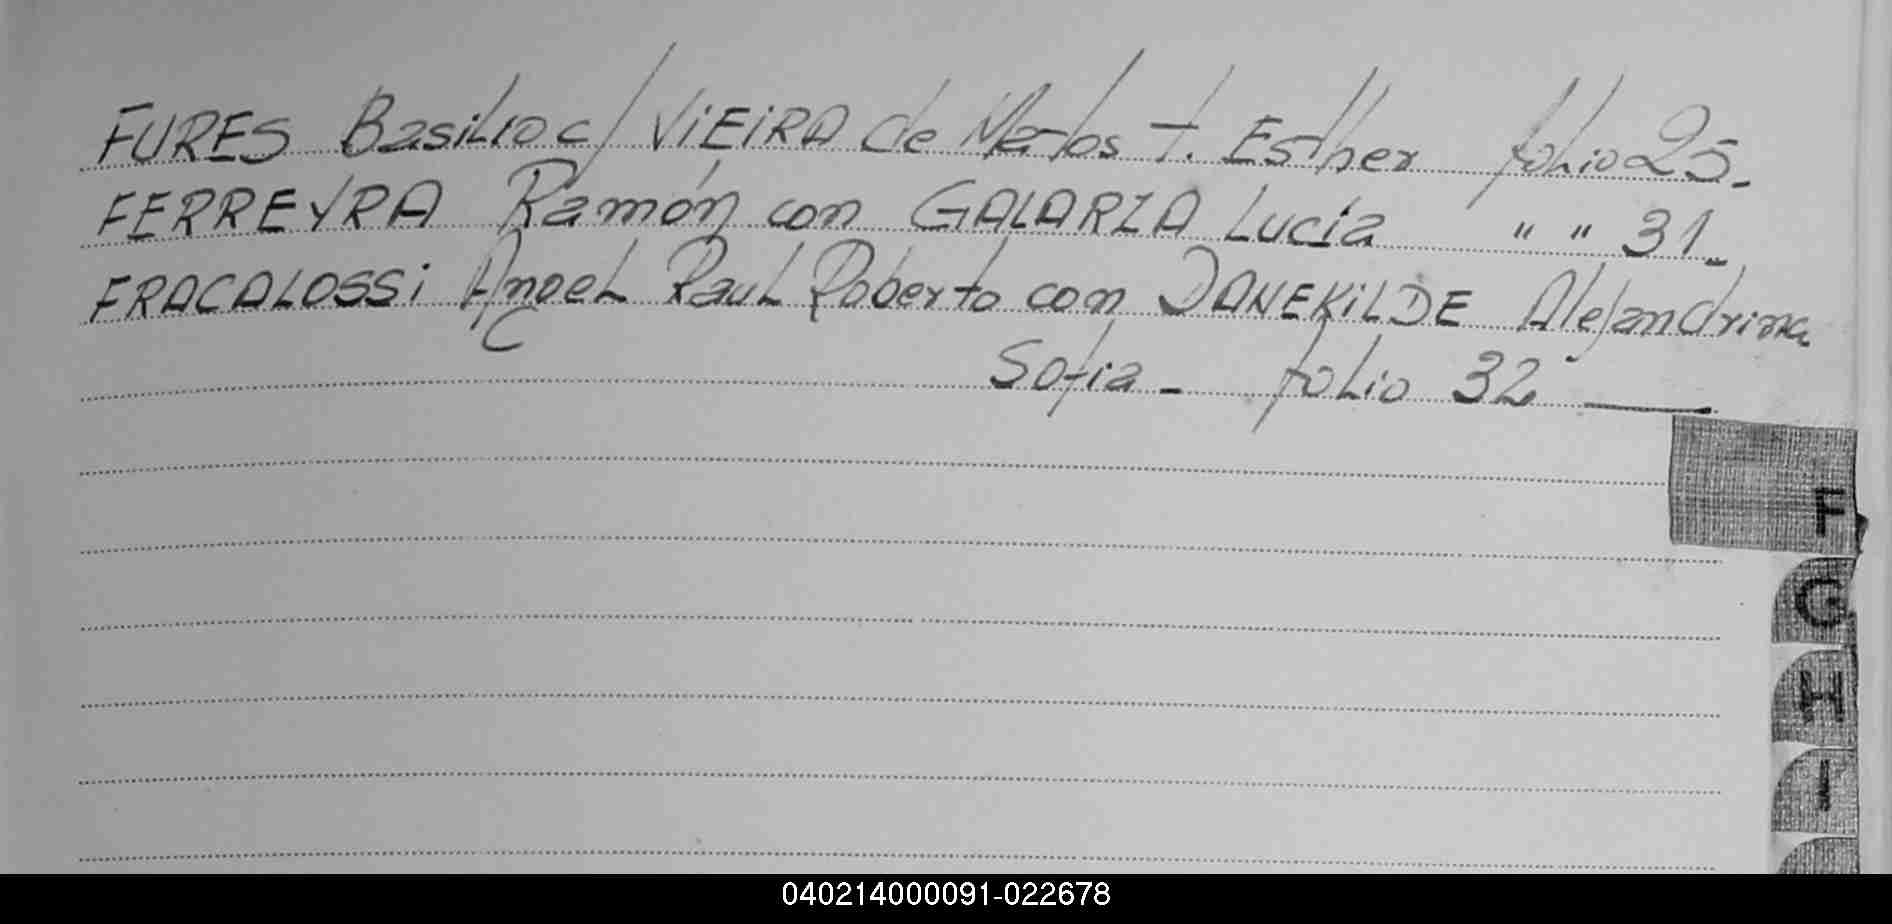 FURES Basilio c/ ViEiRA de Matos T. Esther folio 25.
FERREYRA Ramón con GALARZA Lucía " " 31_
FRACALOSSi Angel Raul Roberto con DANEKiLDE Alejandrina
Sofia - folio 32 ____
F
G
H
I
040214000091-022678